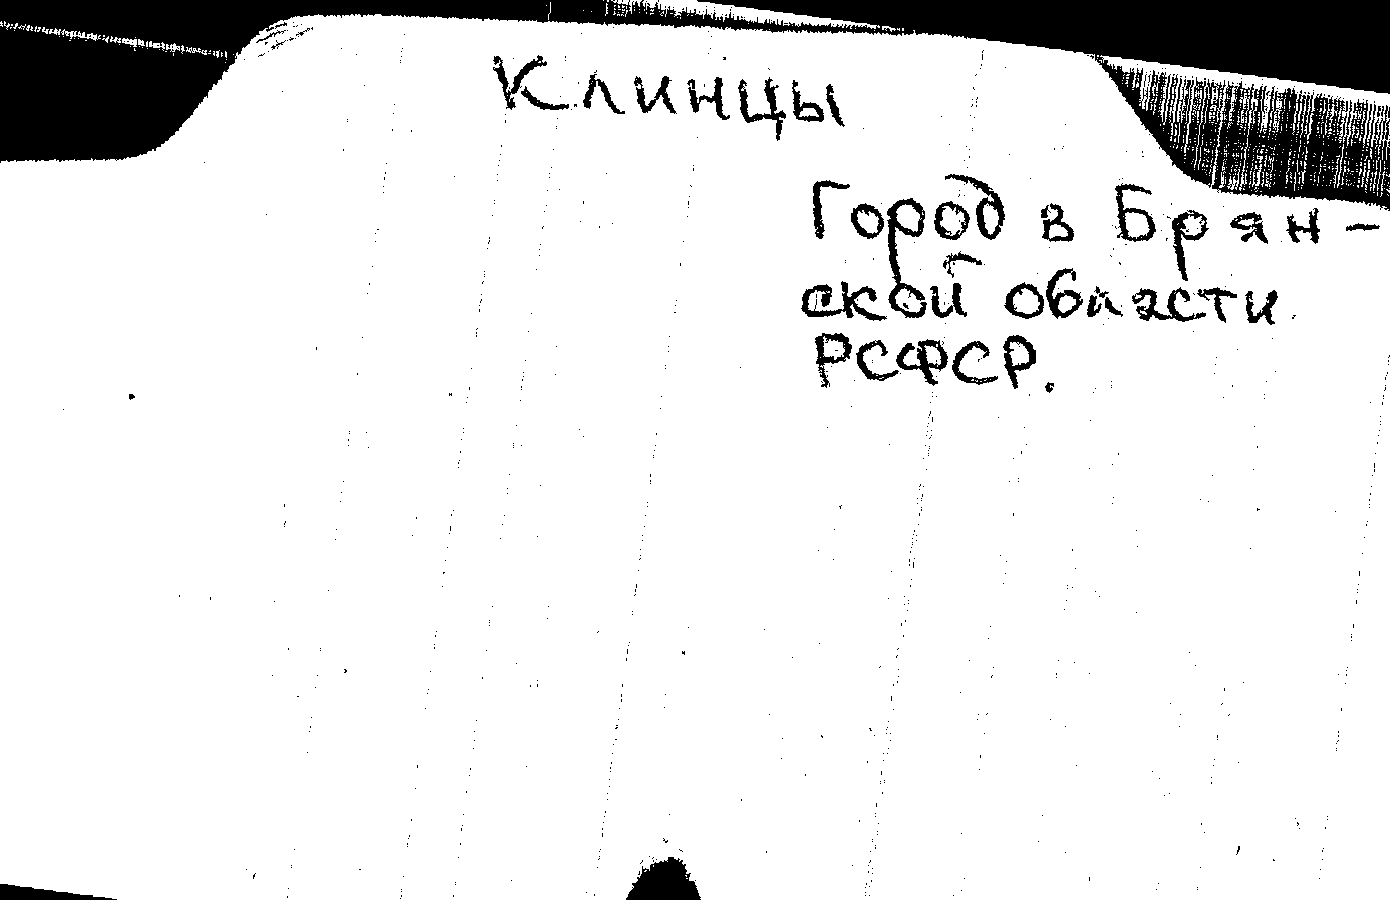 Клинцы
Город в Брян-
ской области
РСФСР.